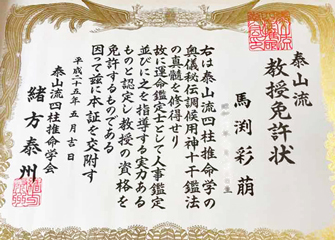 泰山流
教授免許状
馬渕彩萠
右は泰山流四柱推命学の
奥儀秘伝調候用神十干鑑法
の真髄を修得せり
故に運命鑑定士として人事鑑定
並びに之を指導する実力ある
ものと認定し教授の資格を
免許するものである
因って茲に本証を交附す
平成二十五年五月吉日
泰山流四柱推命学会
緒方泰州